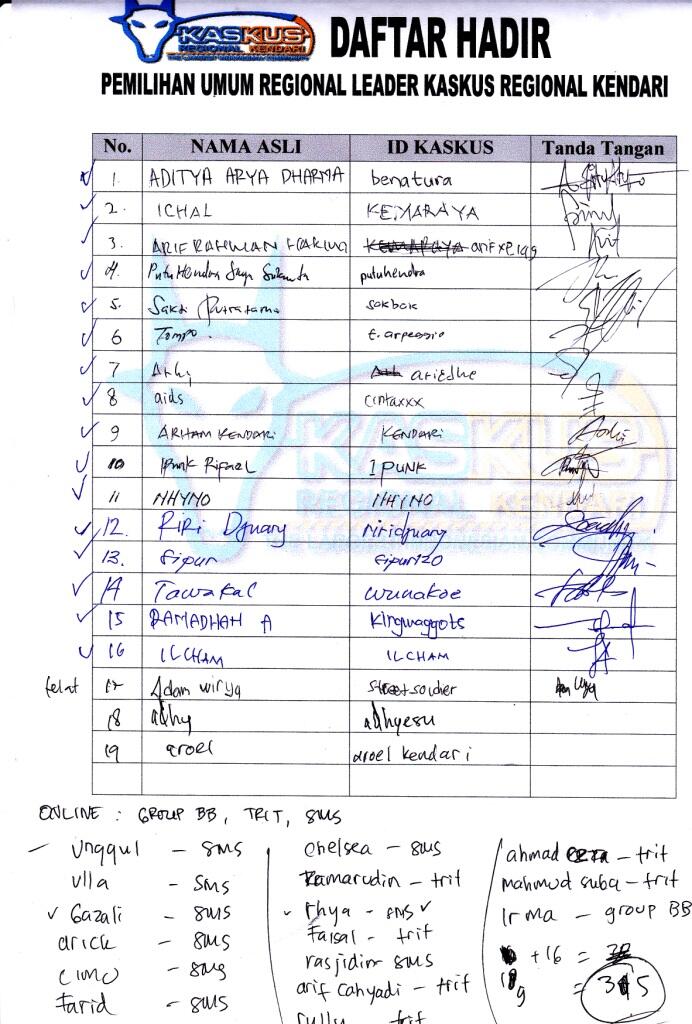 KASKUS
REGIONAL KENDARI
DAFTAR HADIR
PEMILIHAN UMUM REGIONAL LEADER KASKUS REGIONAL KENDARI
No. NAMA ASLI ID KASKUS Tanda Tangan
1. ADITYA ARYA DHARMA benatura
2. ICHAL KEMARAYA
3. ARIF RAHMAN HAKIM
4. Putu Hendra putuhendra
5. Sakti Putratama sakbok
6 Tompo. t.arpeggio
7 ariedhe
8 aids cintaxxx
9 ARHAM KENDARI KENDARI
10 IPUNK
11 NHYNO NHYNO
12. RIRI Djuary riridjuary
13. Gipur Gipur120
14 Tawakal wunakoe
15 RAMADHAN A Kingmaggots
16 ILCHAM ILCHAM
telat 17 Adam wirya streetsoldier
18 adhy adhyesu
19 aroel aroel kendari
KASKUS
REGIONAL KENDARI
ONLINE : GROUP BB, TRIT, SMS
Unggul - SMS
Ulla - SMS
Gazali - SMS
arick - SMS
cimo - SMS
Farid - SMS
chelsea - SMS
Kamarudin - trit
Rhya - sms
Faisal - trit
rasjidin SMS
arif cahyadi - trit
rully trit
ahmad - trit
mahmud suba - trit
Irma - group BB
+16 =
= 35